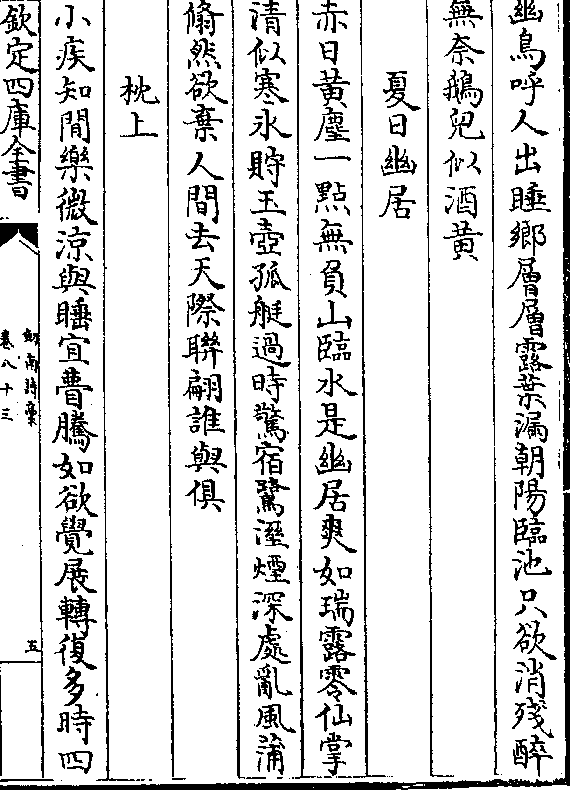 幽鳥呼人出睡鄉層層露葉漏朝陽臨池只欲消殘醉
無奈鵝兒似酒黄
夏日幽居
赤日黄塵一點無負山臨水是幽居爽如瑞露零仙掌
清似寒氷貯玉壺孤艇過時驚宿鷺溼煙深處亂風蒲
翛然欲棄人間去天際聯翩誰與俱
枕上
小疾知閒樂微涼與睡宜瞢騰如欲覺展轉復多時四
欽定四庫全書
劒南詩稾
卷八十三
五